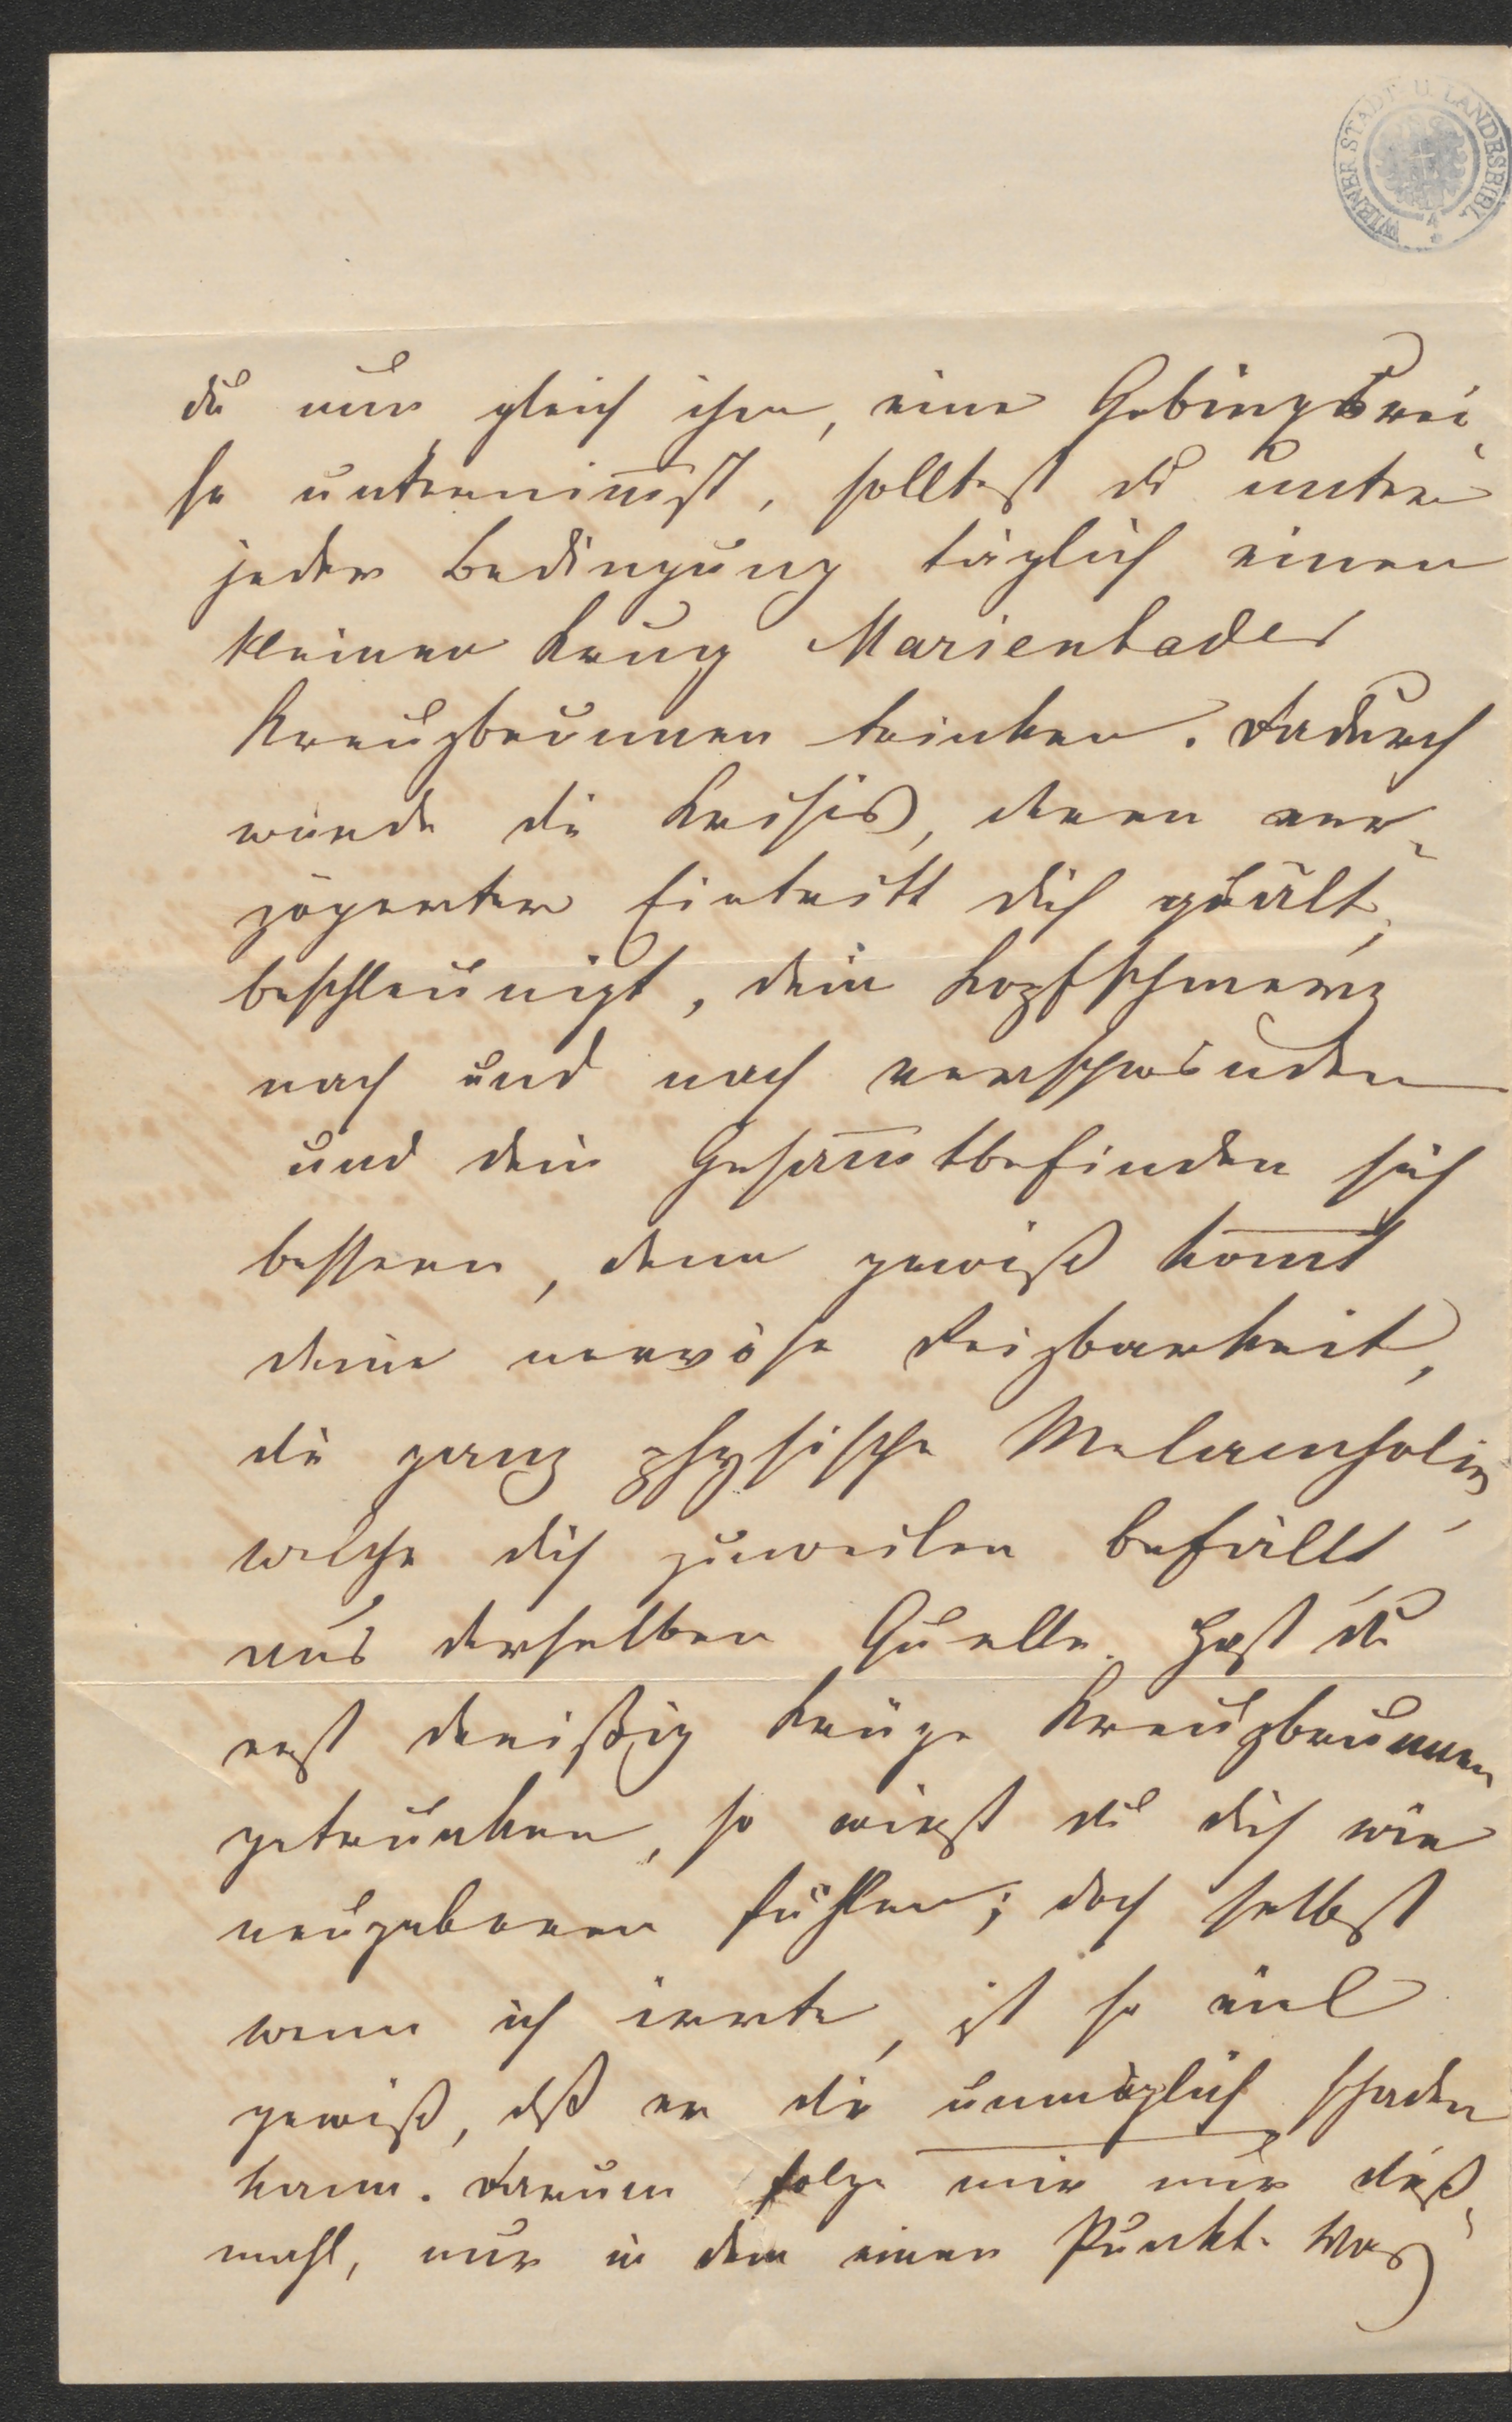 WIENER STADT U. LANDESBIBL.
du nun gleich ihm, eine Gebirgsrei-
se unternim̄st, solltest du unter
jeder Bedingung täglich einen
kleinen Krug Marienbader
Kreuzbrunnen trinken. Dadurch
würde die Krisis, deren ver-
zögerter Eintritt dich quält,
beschleunigt, dein Kopfschmerz
nach und nach verschwinden
und dein Gesam̄tbefinden sich
bessern, denn gewiß kom̄t
deine nervöse Reizbarkeit,
die ganz physische Melancholie,
welche dich zuweilen befällt,
aus derselben Quelle. Hast du
erst dreißig Krüge Kreuzbrunnen
getrunken, so wirst du dich wie
neugeboren fühlen; doch selbst
wenn ich irrte, ist so viel
gewiß, dß er dir unmöglich schaden
kann. Darum folge mir nur dieß-
mahl, nur in dem einen Punkt. Was